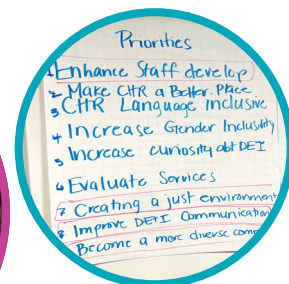 Priorities
1 Enhance Staff develop
2 Make CHR a Better Place
3 CHR Language Inclusive
4 Increase Gender Inclusivity
5 Increase curiosity abt DEI
6 Evaluate Services
7 Creating a just environment
8 Improve DEI Communication
Become a more diverse com